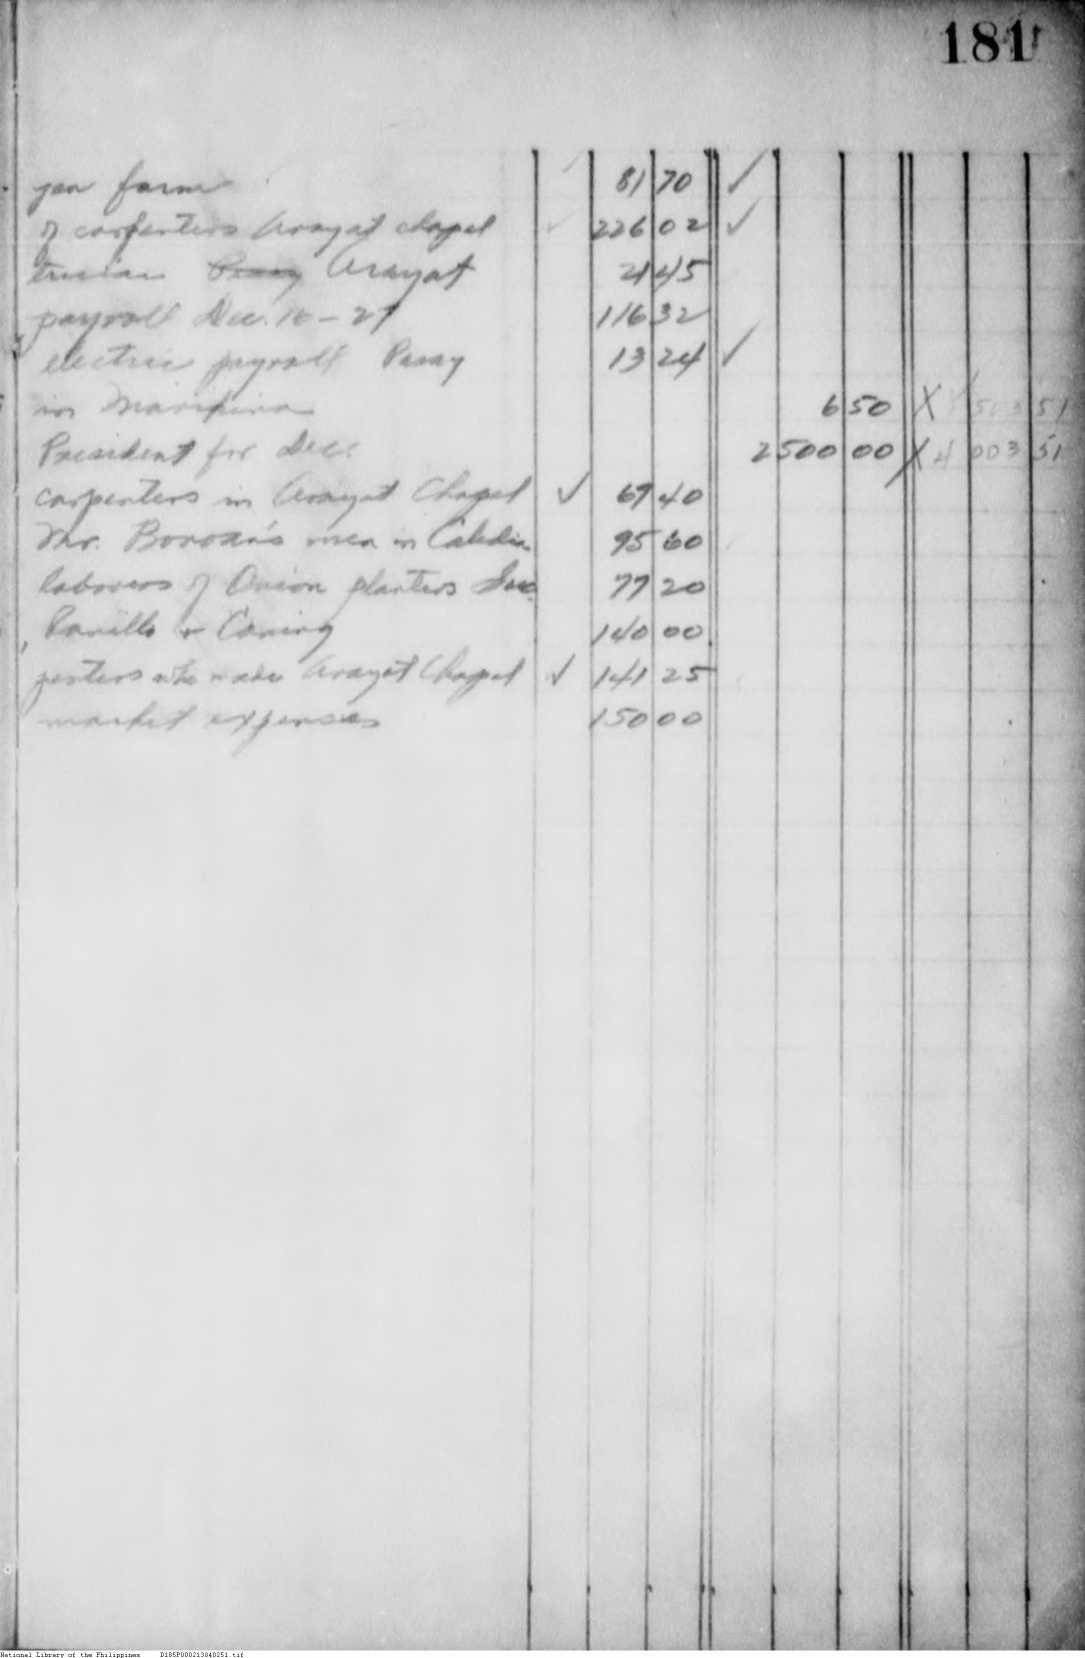 181
yen farm 81 70 ✓
of carpenters Arayat chapel ✓ 226 02 ✓
trician Pasay Arayat 21 45
payroll Dec. 16 - 27 116 32
electric payroll Pasay 13 24 ✓
in Mariquina 6 50 X 503 51
President for Dec. 2500 00 X 4 003 51
carpenters in Arayat Chapel ✓ 69 40
Mr. men in 95 60
laborers of Onion planters 77 20
Parillo & Caning 140 00
penters who made Arayat Chapel ✓ 141 25
market expenses 150 00
National Library of the Philippines D185P000213040251.tif